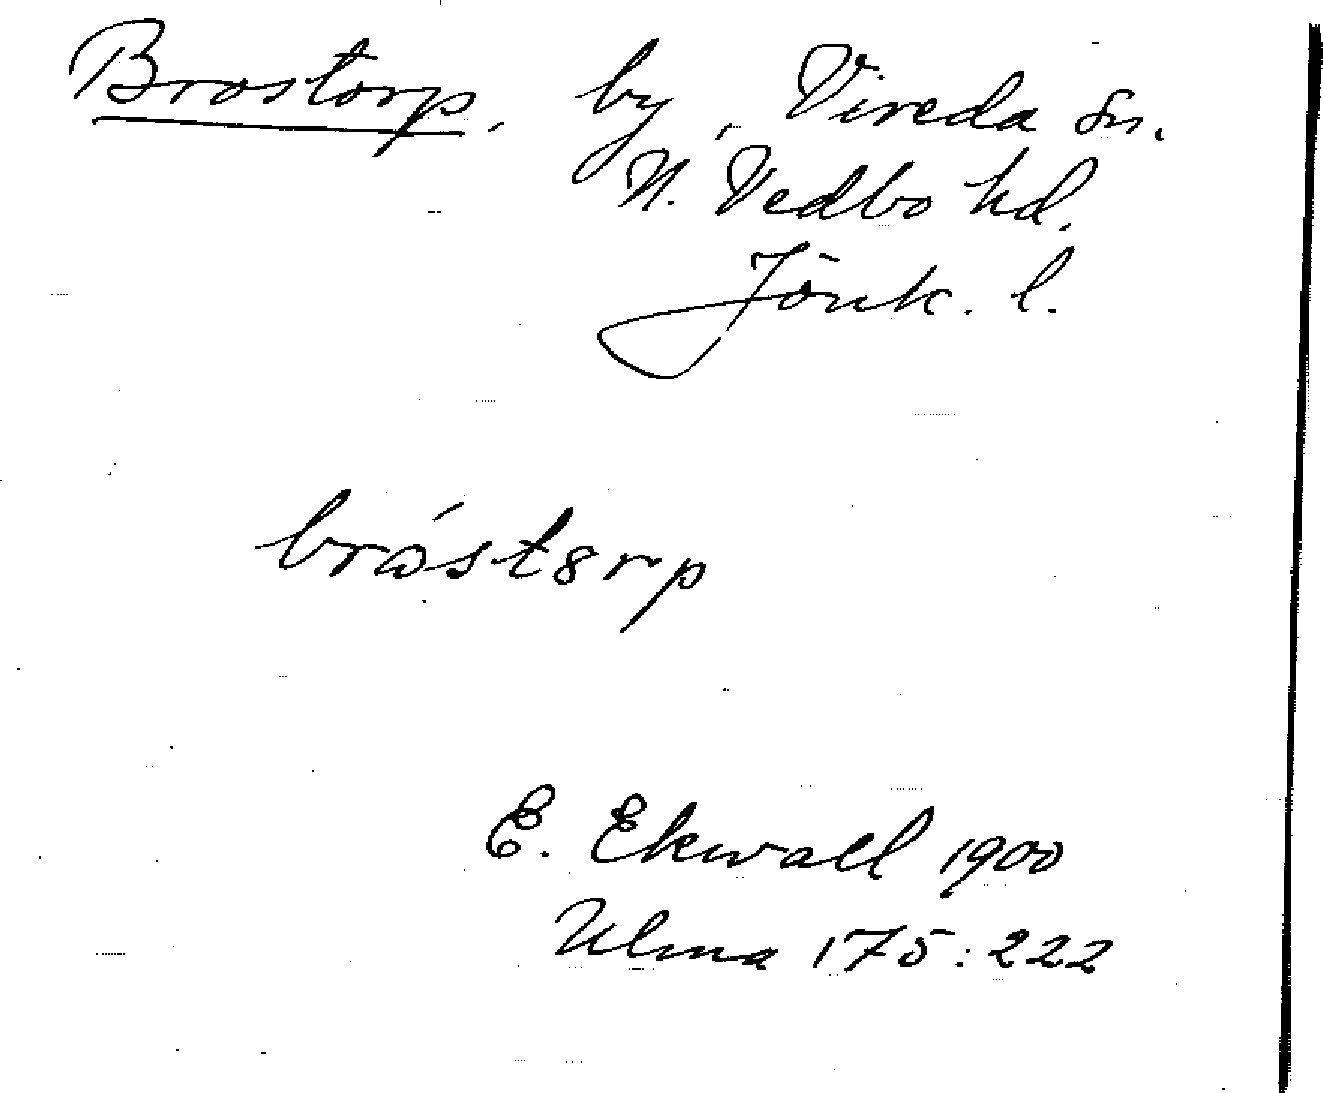 Brostorp, by, Vireda sn.
N. Vedbo hd.
Jönk. l.
bróst8rp
E. Ekwall 1900
Ulma 175:222